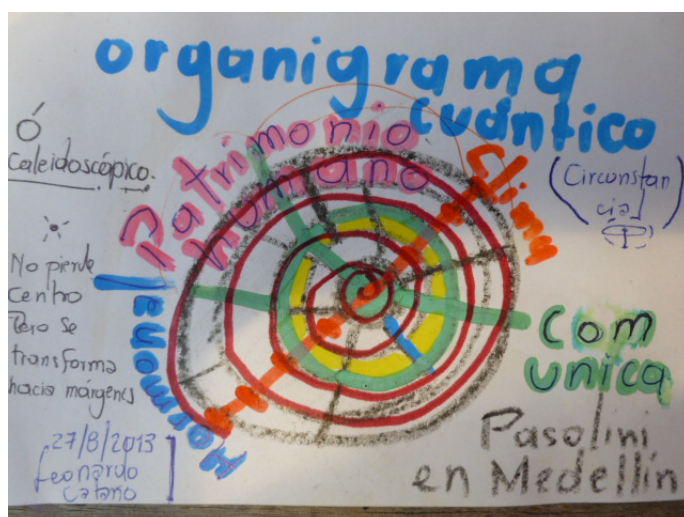 organigrama
cuántico
Ó
Caleidoscópico.
Patrimonio
humano
Clima
(Circunstan
cial)
No pierde
Centro
Pero se
transforma
hacia márgenes
Hormonal
Com
unica
27/8/2013
Leonardo
Cataño
Pasolini
en Medellín